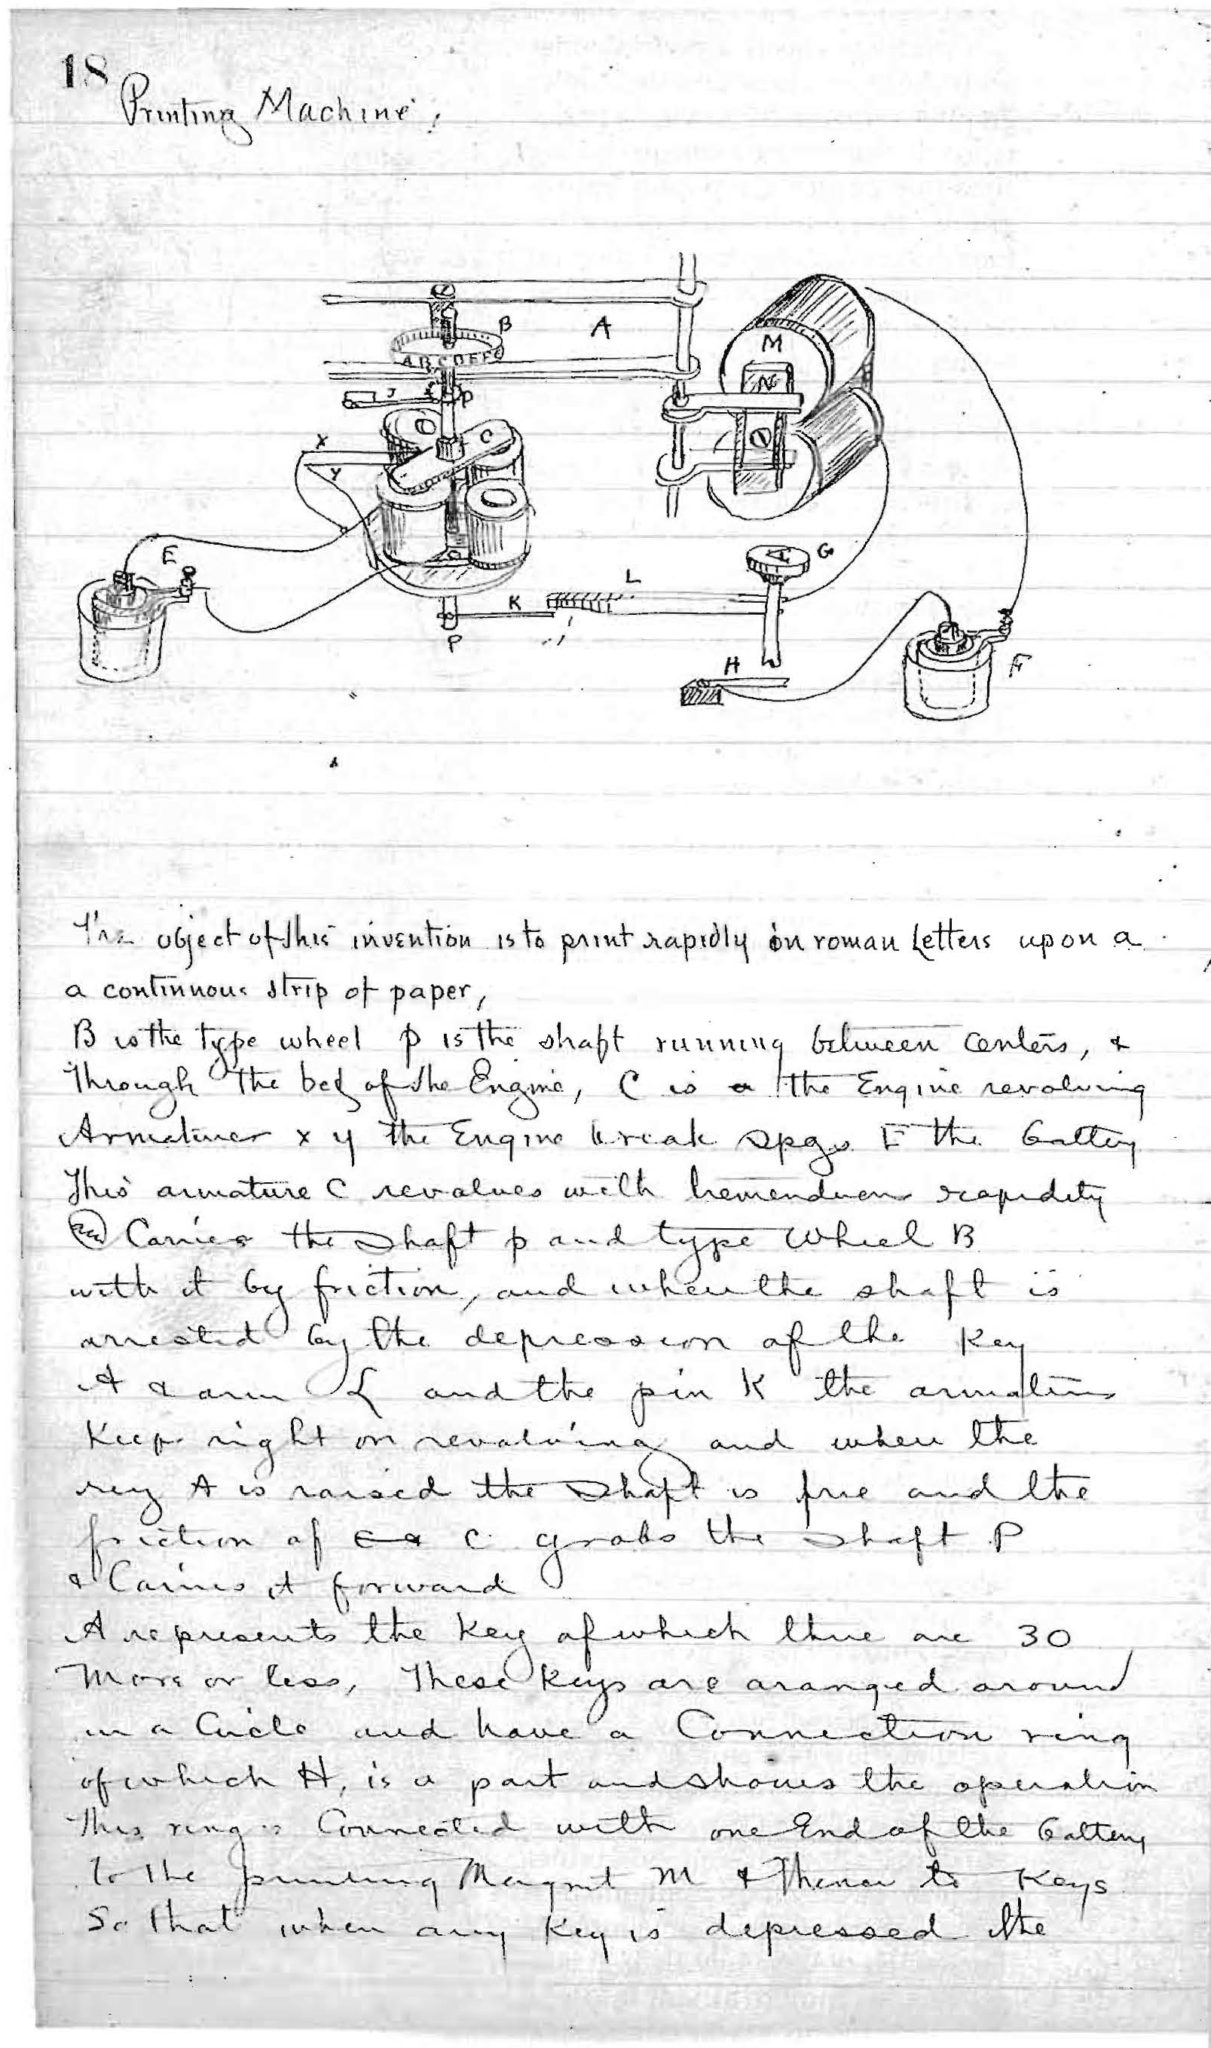 18
Printing Machine,
B
A
A B C D E F G
M
N
J
P
X
C
Y
E
G
A
L
K
P
H
F
The object of this invention is to print rapidly in roman Letters upon a
a continuous strip of paper,
B is the type wheel p is the shaft running between centers, &
through the bed of the Engine, C is a the Engine revolving
Armature x y the Engine break spgs E the battery
This armature C revolves with tremendous rapidity
Carries the shaft p and type Wheel B
with it by friction, and when the shaft is
arrested by the depression of the Key
A & arm L and the pin K the armature
Keep right on revolving and when the
key A is raised the shaft is free and the
friction of C grabs the shaft P
& Carries it forward
A represents the Key of which there are 30
More or less, These keys are aranged around
in a Circle and have a Connection ring
of which H, is a part and shows the operation
This ring is Connected with one End of the battery
to the printing Magnet M & thence to Keys
So that when any Key is depressed the